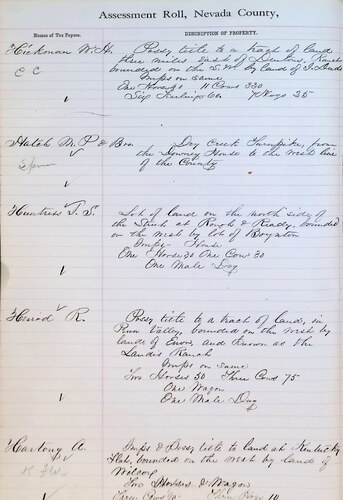 Assessment Roll, Nevada County,
Names of Tax Payers.
DESCRIPTION OF PROPERTY.
Hickman W. H.
C C
Possy title to a tract of land
three miles East of Ranch
bounded on the S.W. by land of
Imps on same
One Horse 11 Cows 330
Six Yearlings 7 Hogs 35
Hatch M. P. & Bro
Dry Creek Turnpike, from
the Downey House to the West line
of the County
Huntress T. S.
Lot of land on the north side of
the Street at Rough & Ready, bounded
on the West by lot of Boynton
Imps House
One Horse 30 One Cow 30
One Male Dog
R.
Possy title to a tract of land, in
Penn Valley, bounded on the West by
lands of and known as the
Landis Ranch
Imps on same
Two Horses 50 Three Cows 75
One Wagon
One Male Dog
Hartung A.
Imps & Possy title to land at Kentucky
Flat, bounded on the West by land of
Wilcox
Two Horses & Wagon